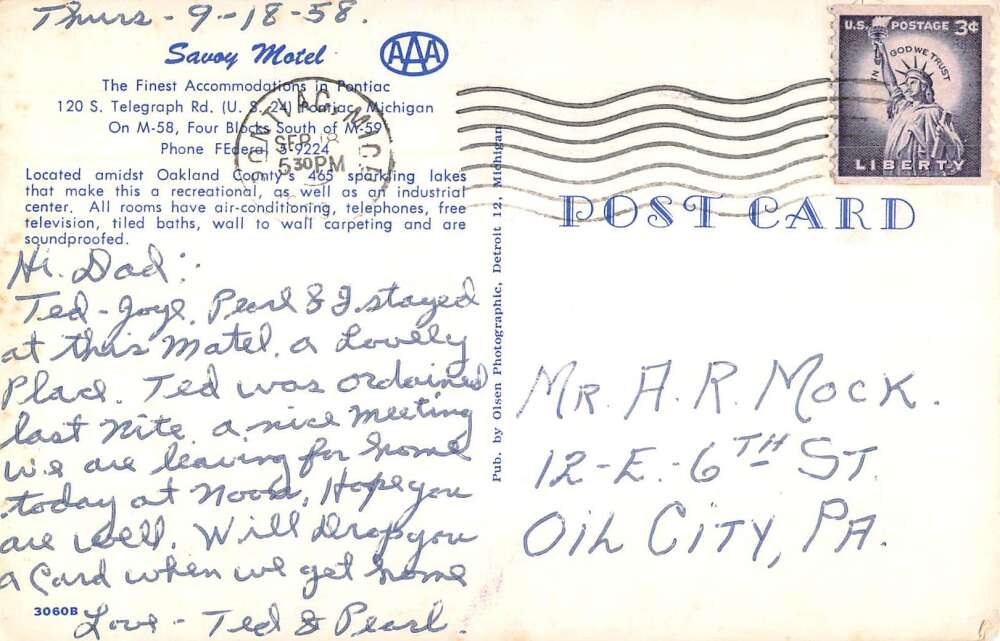 Thurs - 9-18-58.
Savoy Motel
AAA
The Finest Accommodations in Pontiac
120 S. Telegraph Rd. (U. S. 24) Pontiac, Michigan
On M-58, Four Blocks South of M-59
Phone FEderal 5-9224
Located amidst Oakland County's 465 sparkling lakes
that make this a recreational, as well as an industrial
center. All rooms have air-conditioning, telephones, free
television, tiled baths, wall to wall carpeting and are
soundproofed.
PONTIAC, MICH.
SEP 18
5 30 PM
U.S. POSTAGE 3¢
IN GOD WE TRUST
LIBERTY
POST CARD
Hi. Dad:
Ted - Joye. Pearl & I stayed
at this Motel. a Lovely
Place. Ted was ordained
last nite. a nice meeting
we are leaving for home
today at noon. Hope you
are well. Will drop you
a Card when we get home
Love - Ted & Pearl.
3060B
Pub. by Olsen Photographic, Detroit 12, Michigan
MR. A. R. MOCK.
12-E.-6TH ST.
OIL CITY, PA.